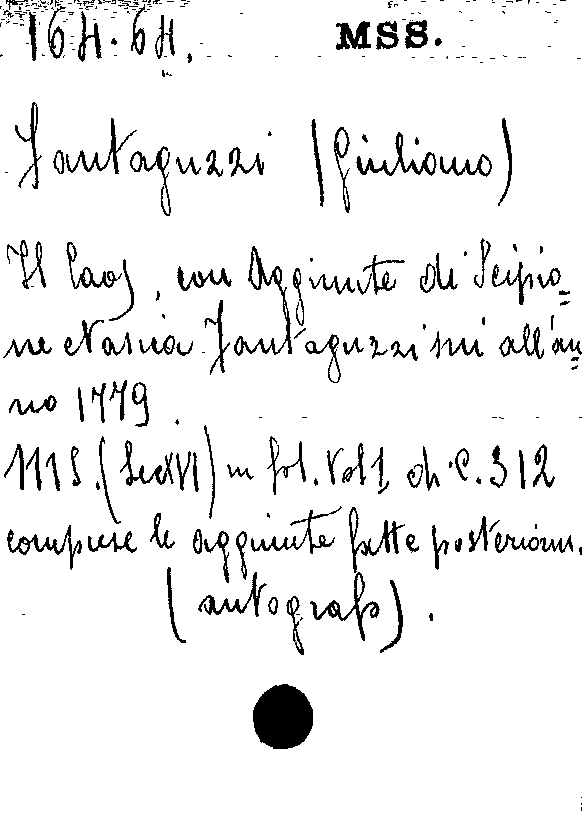 164.64. MSS.
Fantaguzzi (Giuliano)
Il Caos, con Aggiunte di Scipio=
ne Nasica Fantaguzzi sui all'an=
no 1779.
MS. (Sec XVI) in fol. Vol 1 di C. 312
comprese le aggiunte fatte posteriorm.
(autografo).